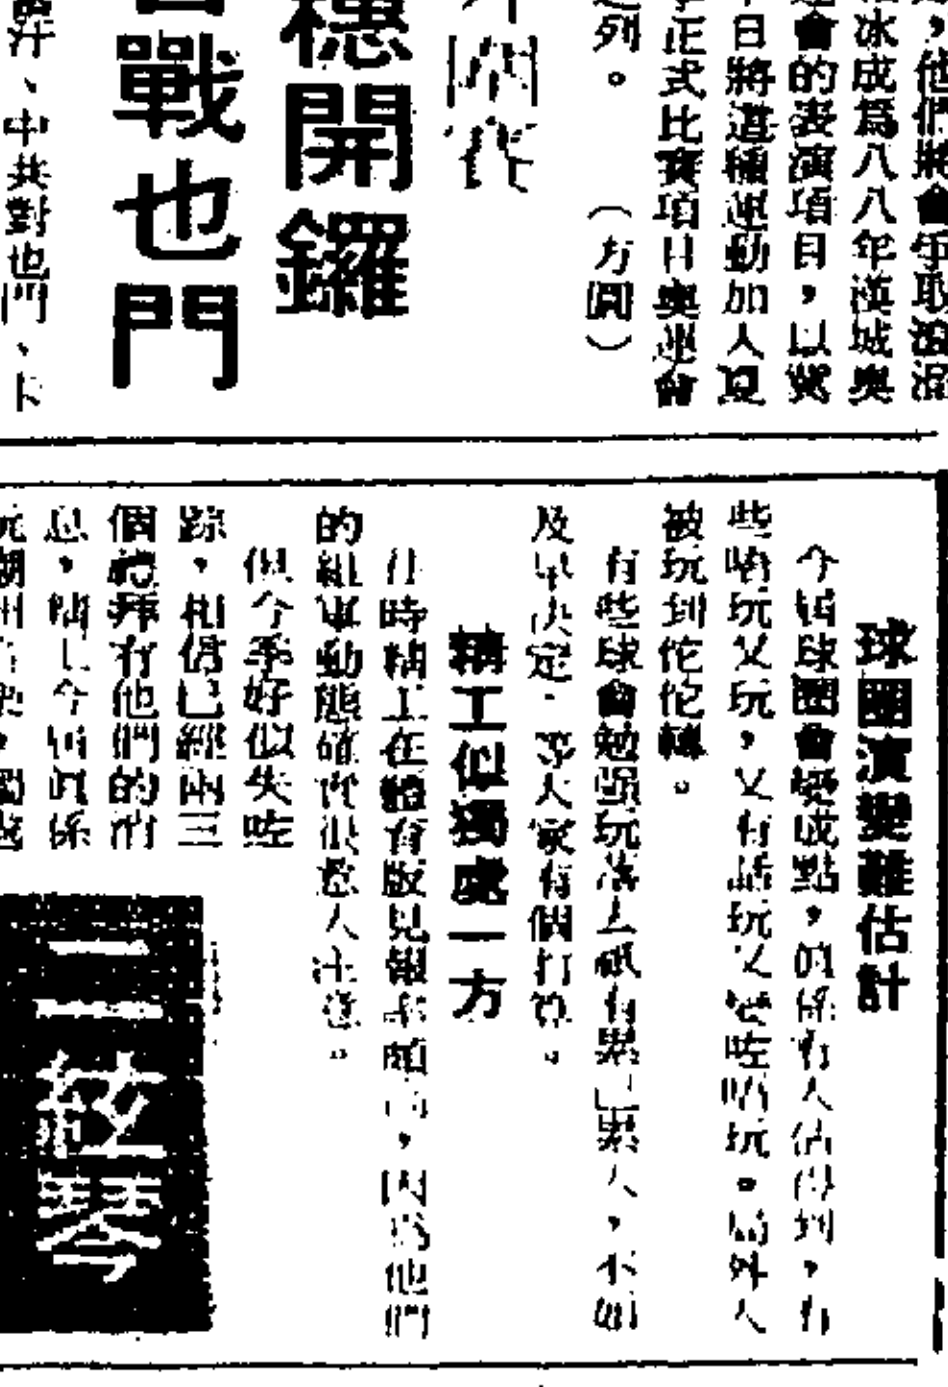 ，他們將會爭取滾
冰成爲八八年漢城奧
會的表演項目，以冀
日將這種運動加入夏
正式比賽項目奧運會
列。　（方圓）
穩開鑼
戰也門
汗、中共對也門、卡
球圈演變難估計
今屆球圈會變成點，的係冇人估得到，有
些唔玩又玩，又有話玩又變咗唔玩。局外人
被玩到佗佗轉。
有些球會勉强玩落去祇有累己累人，不如
及早決定，等大家有個打算。
精工似獨處一方
往時精工在體育版見報率頗高，因爲他們
的組軍動態確實很惹人注意。
但今季好似失咗
踪，相信已經兩三
個禮拜冇他們的消
息，精工今屆眞係
三絃琴